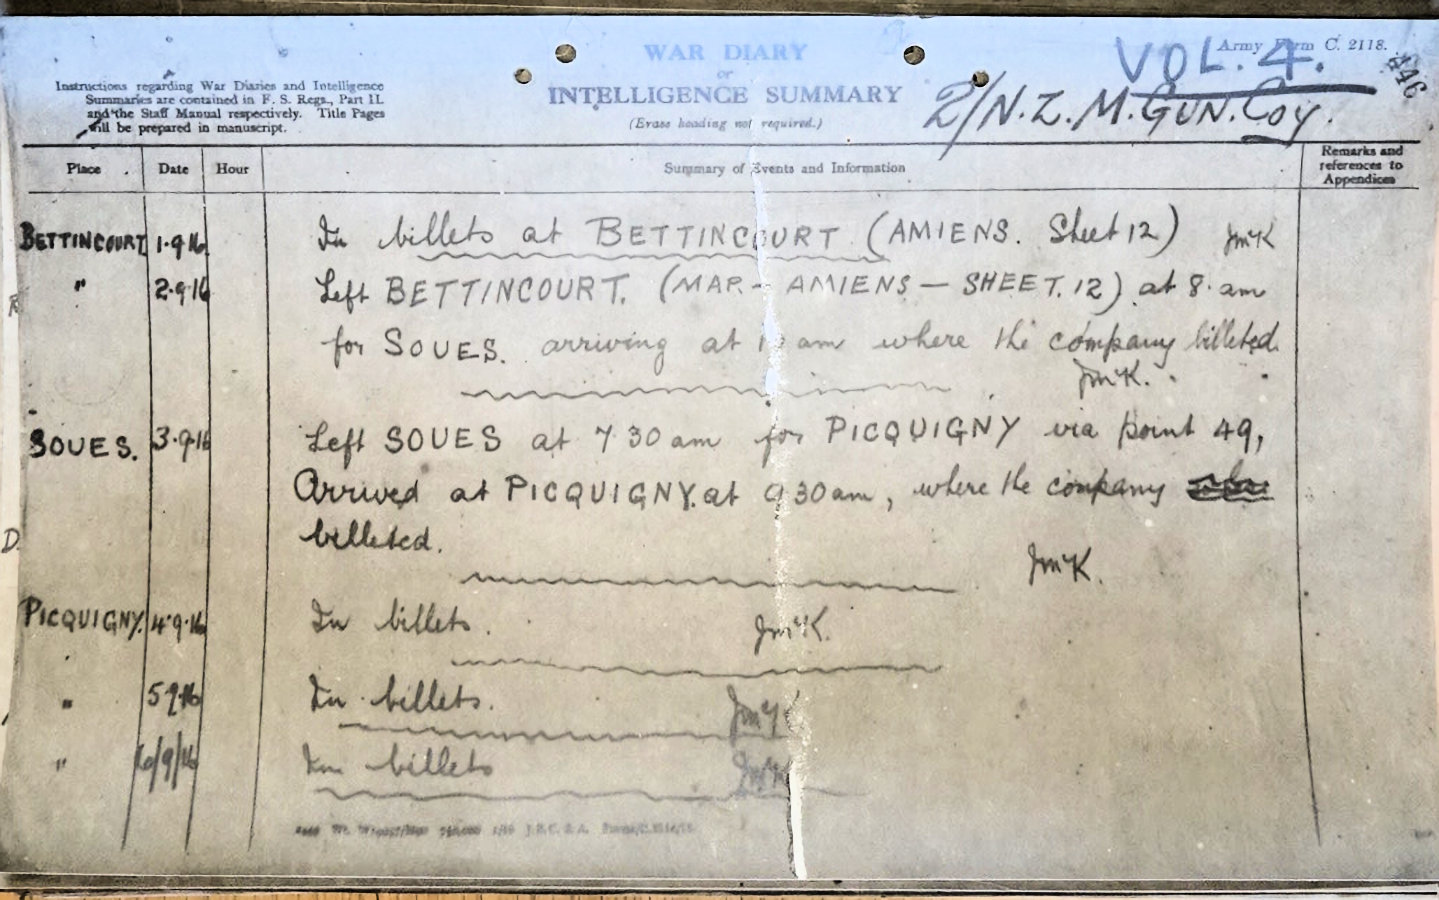 WAR DIARY
or
INTELLIGENCE SUMMARY
(Erase heading not required.)
Army Form C. 2118.
VOL. 4.
446
2/N.Z.M.GUN.COY.
Instructions regarding War Diaries and Intelligence
Summaries are contained in F. S. Regs., Part II.
and the Staff Manual respectively. Title Pages
will be prepared in manuscript.
Place Date Hour Summary of Events and Information Remarks and
references to
Appendices
BETTINCOURT 1.9.16 In billets at BETTINCOURT (AMIENS. Sheet 12) JMcK
" 2.9.16 Left BETTINCOURT. (MAP - AMIENS - SHEET. 12) at 8.am
for SOUES. arriving at am where the company billeted.
JMcK.
SOUES. 3.9.16 Left SOUES at 7 30 am for PICQUIGNY via point 49,
Arrived at PICQUIGNY. at 9 30 am, where the company
billeted.
JMcK.
PICQUIGNY. 4.9.16 In billets. JMcK.
" 5.9.16 In billets. JMcK
" 6/9/16 In billets JMcK